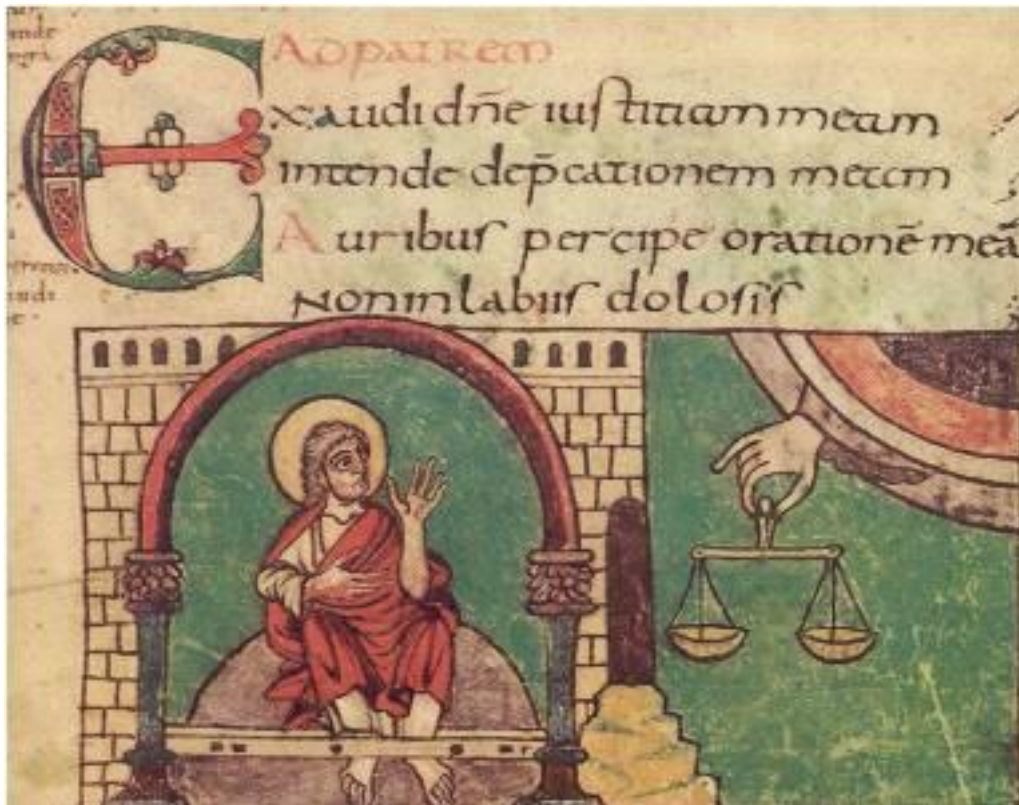 Ad patrem
Exaudi dñe iustitiam meam
intende dep̄cationem meam
Auribus percipe orationē meā
Non in labiis dolosis